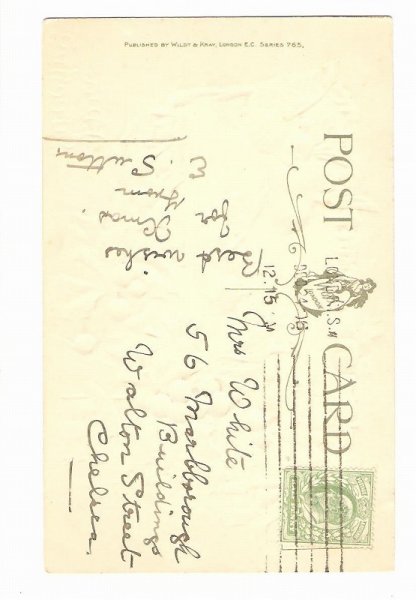 PUBLISHED BY WILDT & KRAY, LONDON E.C. SERIES 765.
POST CARD
LONDON. S.W
12.15
Best wishes
for Xmas.
from
E. Sutton
Mrs White
56 Marlborough
Buildings
Walton Street
Chelsea.